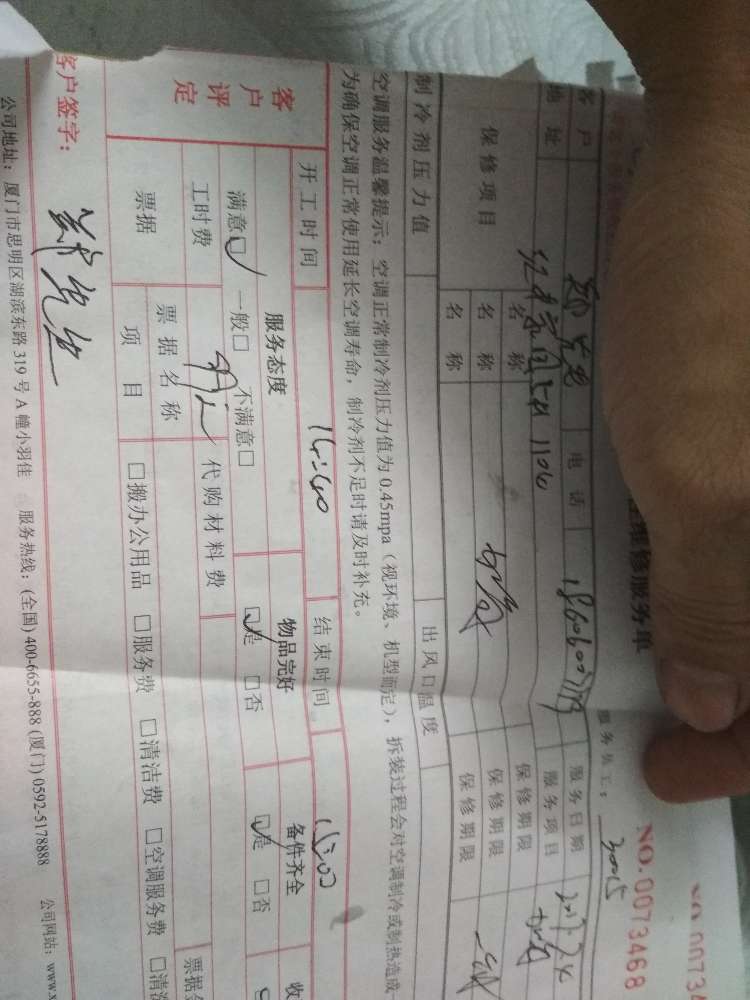 维修服务单
NO.0073468
服务员工：
客户 电话 服务日期
地址 1106 服务项目
保修项目 名称 保修期限
名称 保修期限
名称 保修期限
制冷剂压力值 出风口温度
空调服务温馨提示：空调正常制冷剂压力值为0.45mpa（视环境、机型而定），拆装过程会对空调制冷或制热造成
为确保空调正常使用延长空调寿命，制冷剂不足时请及时补充。
开工时间 14:40 结束时间 15:00
客户评定 服务态度 物品完好 备件齐全 收
满意☑ 一般☐ 不满意☐ ☑是 ☐否 ☑是 ☐否
工时费 代购材料费
票据 票据名称 票据
项目 ☐搬办公用品 ☐服务费 ☐清洁费 ☐空调服务费 ☐清
客户签字：郑先生
公司地址：厦门市思明区湖滨东路319号A幢小羽佳 服务热线：(全国)400-6655-888(厦门)0592-5178888 公司网站：www.x